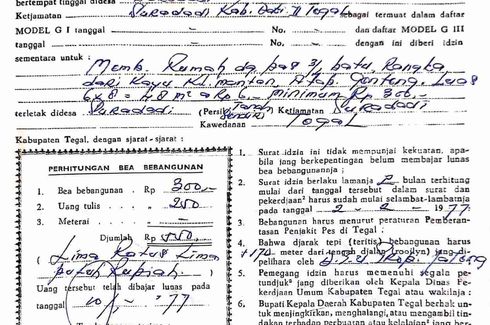 bertempat tinggal didesa
Ketjamatan Suradadi Kab. Dati II Tegal sebagai termuat dalam daftar
MODEL G I tanggal — No. — dan daftar MODEL G III
tanggal — No. — dengan ini diberi idzin
sementara untuk :
Memb. Rumah dg pas 3/ batu, Rangka
dari Kayu Klimantan, Atab Genteng, Luas
6 x 8 = 48 m2 a Rp 6,- minimum Rp 300,-
terletak didesa Suradadi (Persil Tanah Sendiri) Ketjamatan Suradadi
Kawedanan Tegal
Kabupaten Tegal, dengan sjarat-sjarat :
PERHITUNGAN BEA BEBANGUNAN
1. Bea bebangunan . Rp 300,-
2. Uang tulis . . „ 250
3. Meterai . . „ —
Djumlah Rp 550,-
( Lima Ratus Lima
puluh Rupiah )
Uang tersebut telah dibajar lunas pada
tanggal 10/ - '77
1. Surat idzin ini tidak mempunjai kekuatan, apa-
bila jang berkepentingan belum membajar lunas
bea bebangunannja ;
2. Surat idzin berlaku lamanja 2 bulan terhitung
mulai dari tanggal tersebut dalam surat dan
pekerdjaan² harus sudah mulai selambat-lambatnja
pada tanggal 2 - 2 - 1977
3. Bebangunan harus menurut peraturan Pemberan-
tasan Penjakit Pes di Tegal ;
4. Bahwa djarak tepi (teritis) bebangunan harus
+17 meter dari tengah djalan (rooilyn) jang di-
pelihara oleh D.P.U. Prop. Jateng
5. Pemegang idzin harus memenuhi segala pe-
tundjuk² jang diberikan oleh Kepala Dinas Pe-
kerdjaan Umum Kabupaten Tegal atau wakilnja ;
6. Bupati Kepala Daerah Kabupaten Tegal berhak un-
tuk menjingkirkan, menghalangi, atau mengambil tin-
dakan terhadap perbuatan atau kelalaian jang ber-